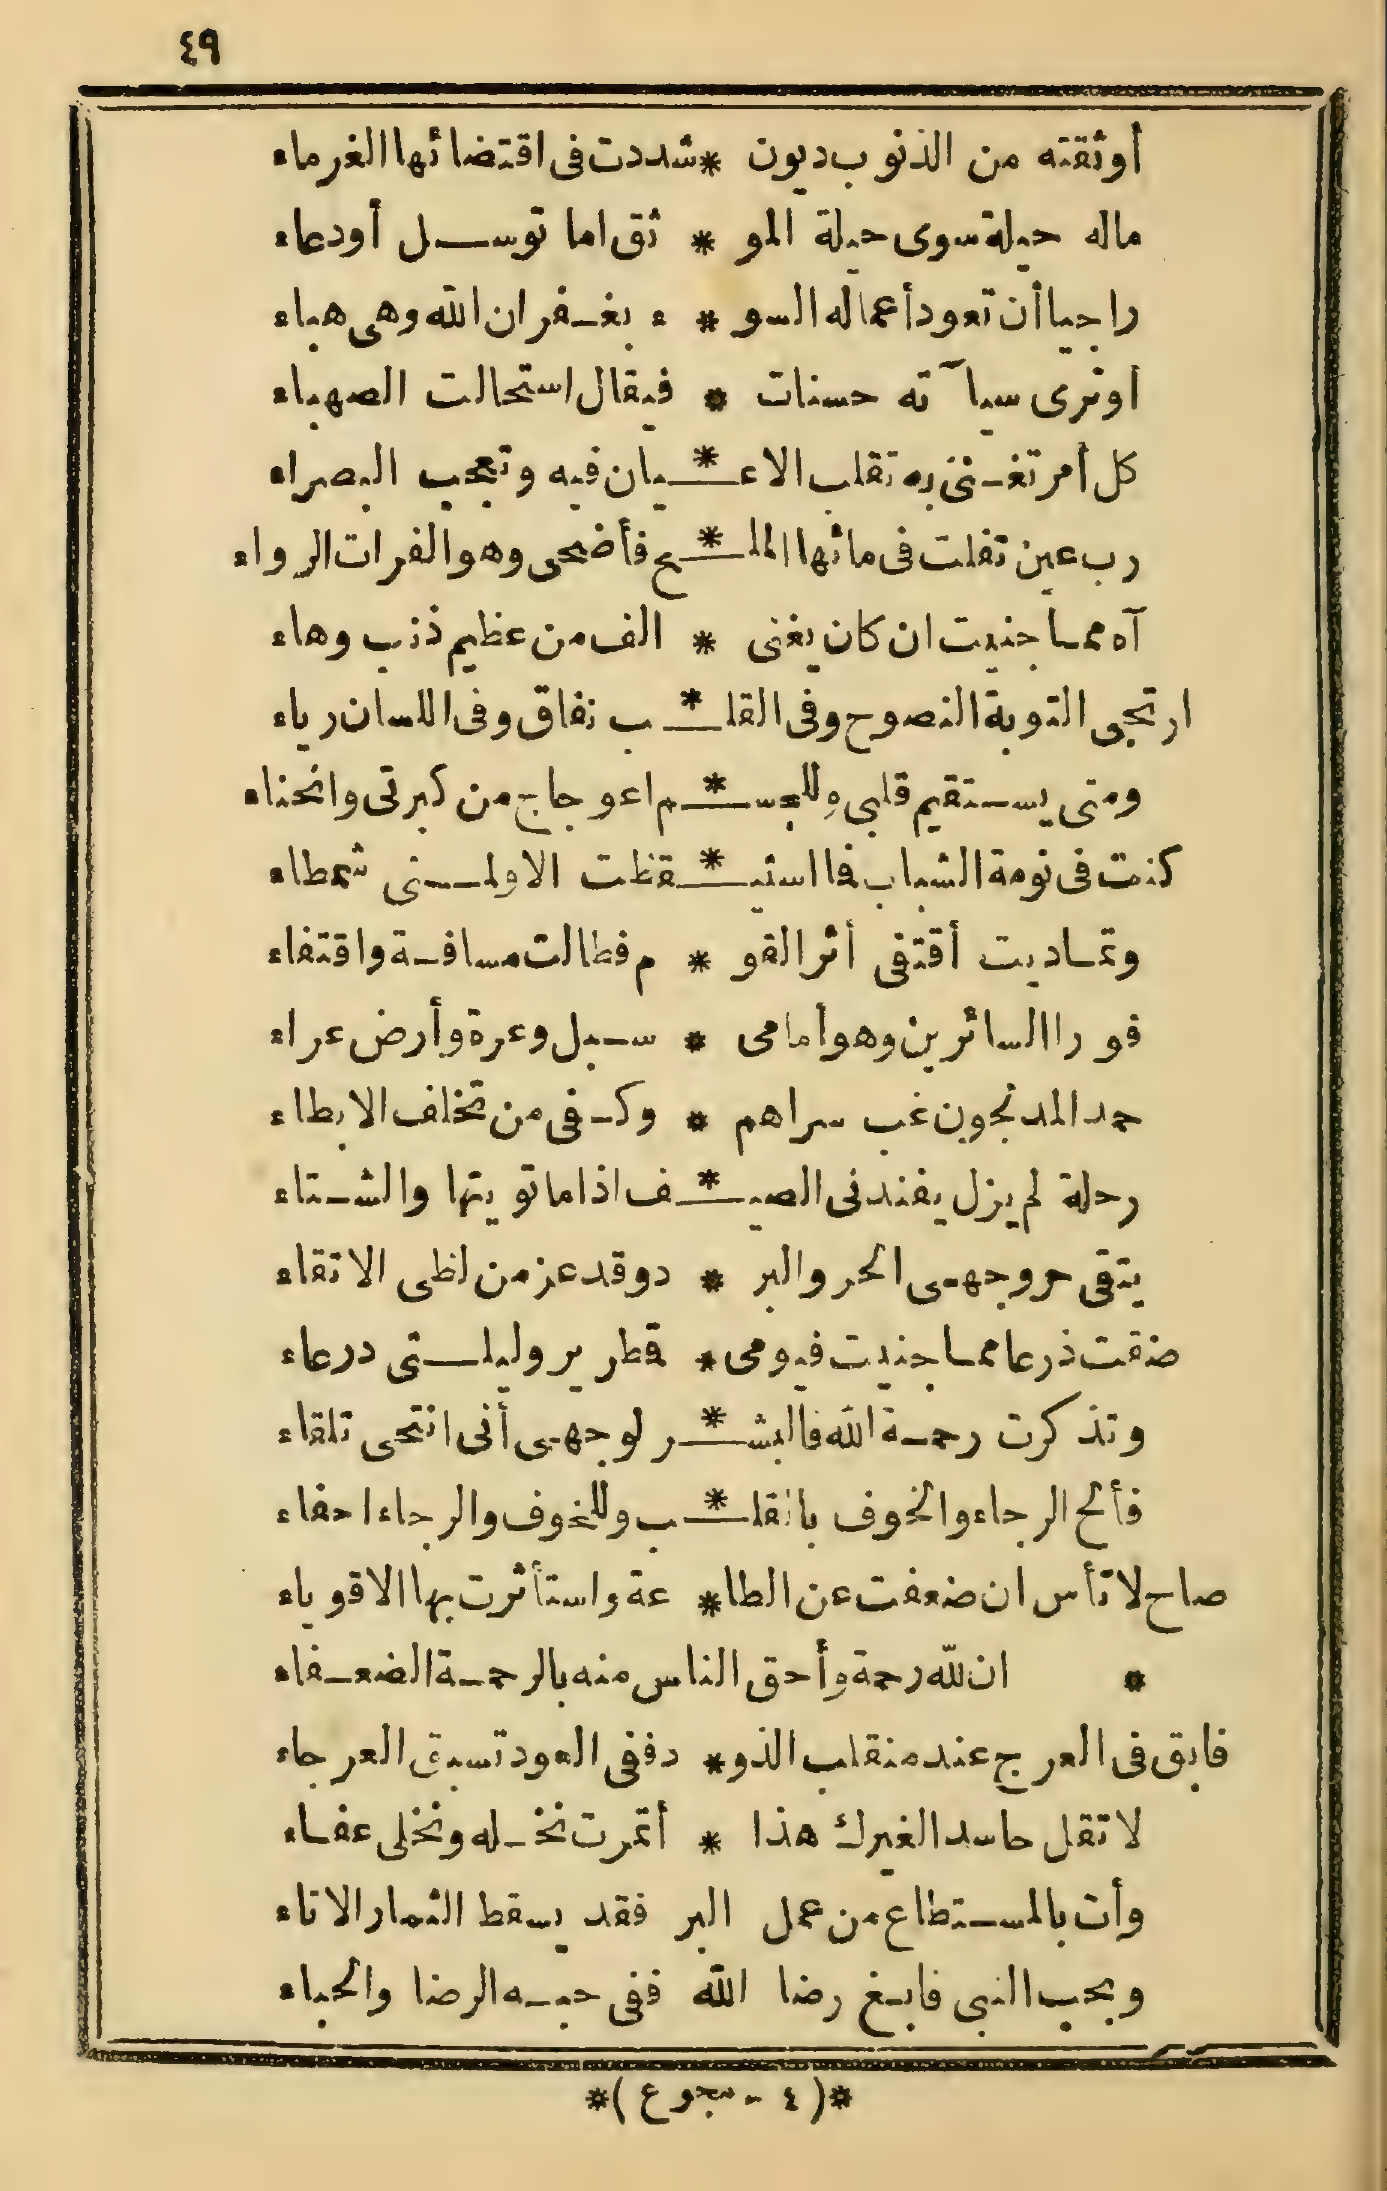 ٤٩
أوثقته من الذنوب ديون * شددت فى اقتضائها الغرماء
ماله حيلة سوى حيلة المو * ثق اما توسل أودعاء
راجيا أن تعود أعماله السو * ء بغفران الله وهى هباء
اوترى سيآته حسنات * فيقال استحالت الصهباء
كل أمر تغنى به تقلب الاعـ * ـيان فيه وتعجب البصراء
رب عين تفلت فى مائها الملـ * ـح فأضحى وهو الفرات الرواء
آه مما جنيت ان كان يغنى * الف من عظيم ذنب وهاء
ارتجى التوبة النصوح وفى القلـ * ـب نفاق وفى اللسان رياء
ومتى يستقيم قلبى وللجسـ * ـم اعوجاج من كبرتى وانحناء
كنت فى نومة الشباب فما استيـ * ـقظت الا ولمتى شمطاء
وتماديت أقتفى أثر القو * م فطالت مسافة واقتفاء
فورا السائرين وهو أمامى * سبل وعرة وأرض عراء
حمد المدلجون غب سراهم * وكفى من تخلف الابطاء
رحلة لم يزل يفندنى الصيـ * ـف اذا مانويتها والشتاء
يتقى حر وجهى الحر والبر * دوقد عز من لظى الاتقاء
ضقت ذرعا مما جنيت فيومى * قطرير وليلتى درعاء
وتذكرت رحمة الله فالبشـ * ـر لوجهى أنى انتحى تلقاء
فألح الرجاء والخوف بالقلـ * ـب وللخوف والرجاء احفاء
صاح لا تأس ان ضعفت عن الطا * عة واستأثرت بها الاقوياء
* ان لله رحمة وأحق الناس منه بالرحمة الضعفاء
فابق فى العرج عند منقلب الذو * دففى العود تسبق العرجاء
لا تقل حاسد الغيرك هذا * أثمرت نخله ونخلى عفاء
وأت بالمستطاع من عمل البر فقد يسقط الثمار الاتاء
وبحب النبى فابغ رضا الله ففى حبه الرضا والحباء
*(٤ - مجموع)*